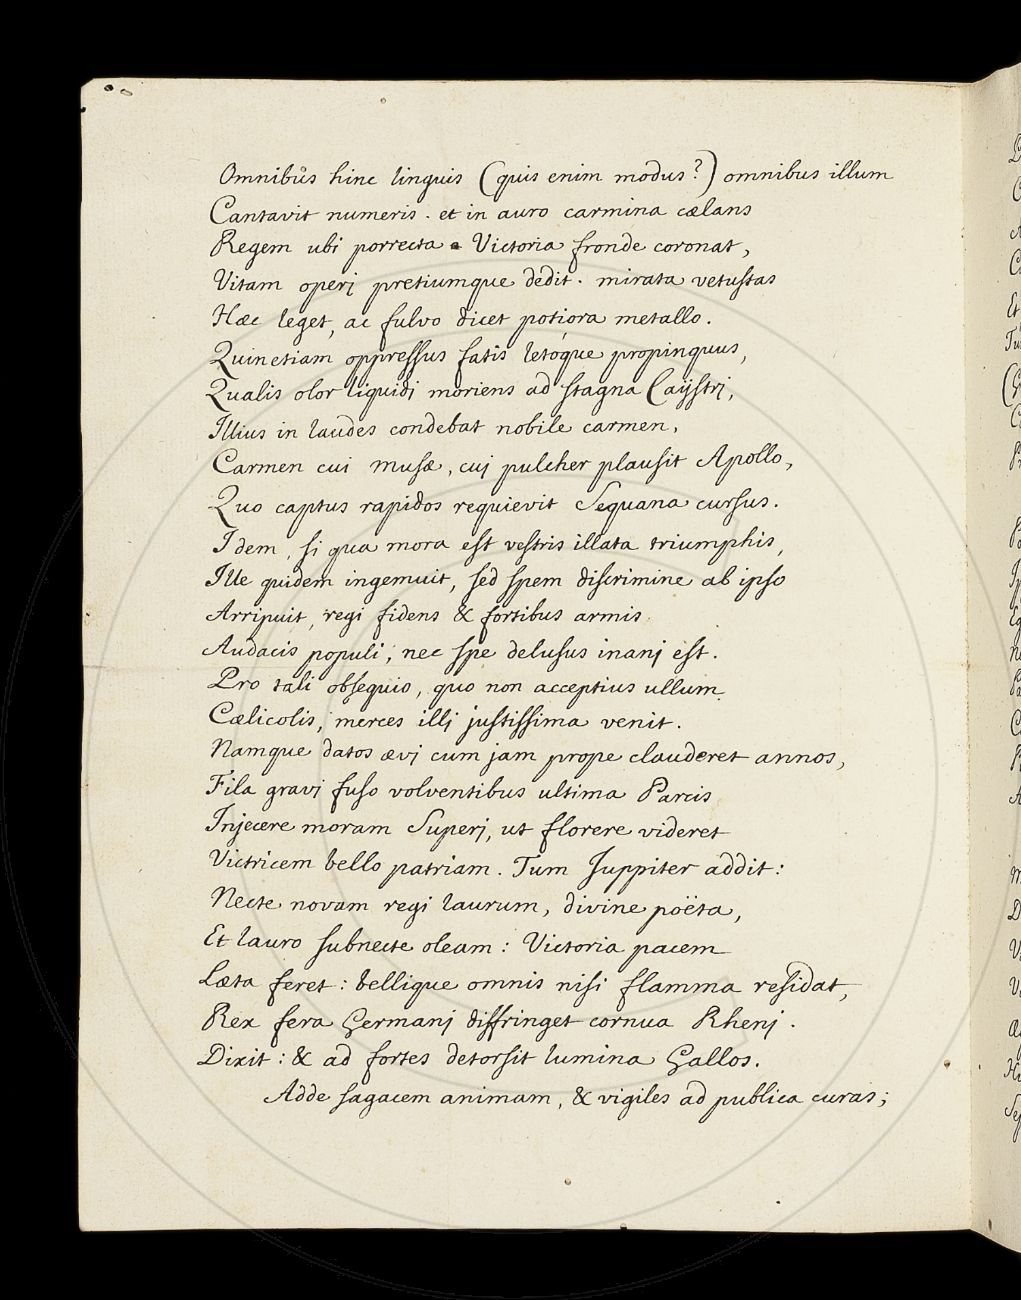 Omnibus hinc linguis (quis enim modus?) omnibus illum
Cantavit numeris. et in auro carmina cælans
Regem ubi porrecta a Victoria fronde coronat,
Vitam operj pretiumque dedit. mirata vetustas
Hæc leget, ac fulvo dicet potiora metallo.
Quinetiam oppressus fatis letóque propinquus,
Qualis olor liquidi moriens ad stagna Caÿstrj,
Illius in laudes condebat nobile carmen,
Carmen cui musæ, cuj pulcher plausit Apollo,
Quo captus rapidos requievit Sequana cursus.
Idem, si qua mora est vestris illata triumphis,
Ille quidem ingemuit, sed spem discrimine ab ipso
Arripuit, regi fidens & fortibus armis
Audacis populi; nec spe delusus inanj est.
Pro tali obsequio, quo non acceptius ullum
Cælicolis, merces illj justissima venit.
Namque datos ævj cum jam prope clauderet annos,
Fila gravj fuso volventibus ultima Parcis
Injecere moram Superj, ut florere videret
Victricem bello patriam. Tum Juppiter addit:
Necte novam regi laurum, divine poëta,
Et lauro subnecte oleam: Victoria pacem
Læta feret: bellique omnis nisi flamma residat,
Rex fera Germanj diffringet cornua Rhenj.
Dixit: & ad fortes detorsit lumina Gallos.
Adde sagacem animam, & vigiles ad publica curas;